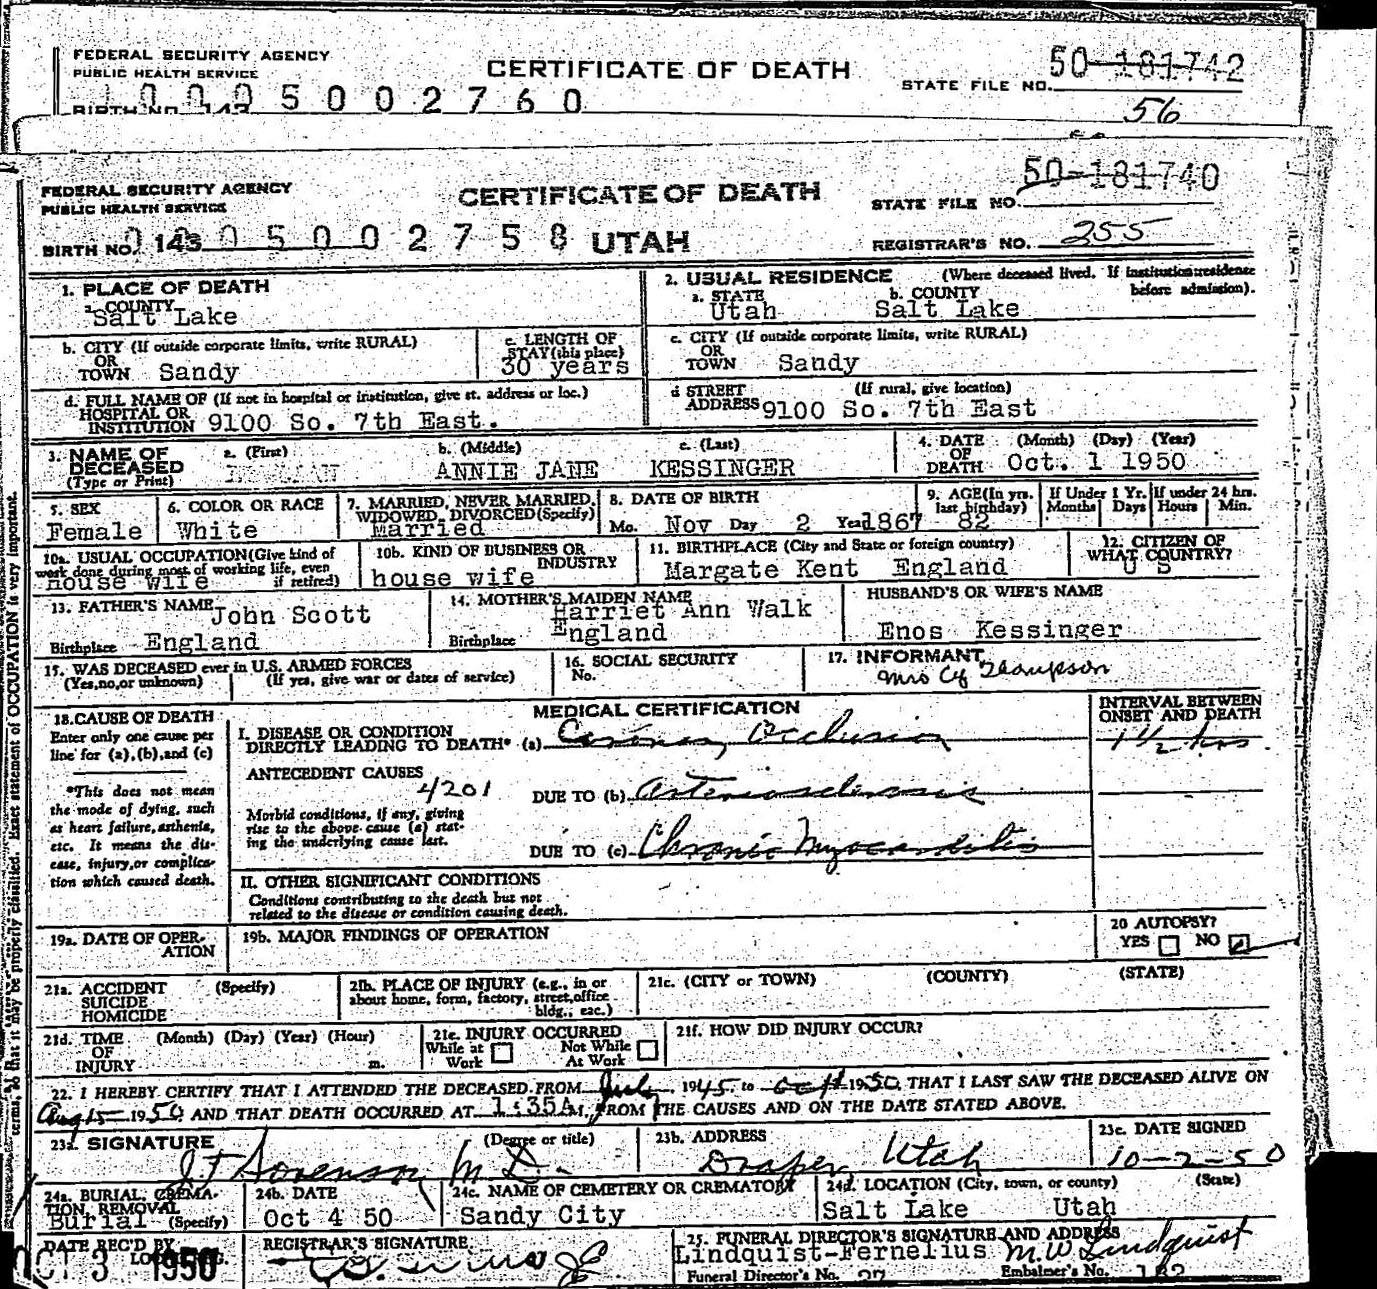 FEDERAL SECURITY AGENCY
PUBLIC HEALTH SERVICE
CERTIFICATE OF DEATH
STATE FILE NO. 50-181742
BIRTH NO. 143
0005002760
56
FEDERAL SECURITY AGENCY
PUBLIC HEALTH SERVICE
CERTIFICATE OF DEATH
50-181740
STATE FILE NO.
BIRTH NO. 143 0005002758 UTAH
REGISTRAR'S NO. 255
1. PLACE OF DEATH
a. COUNTY
Salt Lake
2. USUAL RESIDENCE (Where deceased lived. If institution: residence before admission).
a. STATE Utah b. COUNTY Salt Lake
b. CITY (If outside corporate limits, write RURAL)
OR
TOWN Sandy
c. LENGTH OF
STAY (this place)
30 years
c. CITY (If outside corporate limits, write RURAL)
OR
TOWN Sandy
d. FULL NAME OF (If not in hospital or institution, give st. address or loc.)
HOSPITAL OR
INSTITUTION 9100 So. 7th East.
d STREET (If rural, give location)
ADDRESS 9100 So. 7th East
3. NAME OF DECEASED (Type or Print)
a. (First) b. (Middle) c. (Last)
ANNIE JANE KESSINGER
4. DATE OF DEATH (Month) (Day) (Year)
Oct. 1 1950
5. SEX
Female
6. COLOR OR RACE
White
7. MARRIED, NEVER MARRIED, WIDOWED, DIVORCED (Specify)
Married
8. DATE OF BIRTH
Mo. Nov Day 2 Year 1867
9. AGE (In yrs. last birthday)
82
If Under 1 Yr. Months Days
If under 24 hrs. Hours Min.
10a. USUAL OCCUPATION (Give kind of work done during most of working life, even if retired)
House wife
10b. KIND OF BUSINESS OR INDUSTRY
house wife
11. BIRTHPLACE (City and State or foreign country)
Margate Kent England
12. CITIZEN OF WHAT COUNTRY?
U S
13. FATHER'S NAME John Scott
Birthplace England
14. MOTHER'S MAIDEN NAME
Harriet Ann Walk
Birthplace England
HUSBAND'S OR WIFE'S NAME
Enos Kessinger
15. WAS DECEASED ever in U.S. ARMED FORCES
(Yes, no, or unknown) (If yes, give war or dates of service)
16. SOCIAL SECURITY
No.
17. INFORMANT
Mrs Cy Thompson
18. CAUSE OF DEATH
Enter only one cause per line for (a), (b), and (c)
*This does not mean the mode of dying, such as heart failure, asthenia, etc. It means the disease, injury, or complication which caused death.
MEDICAL CERTIFICATION
INTERVAL BETWEEN ONSET AND DEATH
I. DISEASE OR CONDITION
DIRECTLY LEADING TO DEATH* (a) Coronary Occlusion 1 1/2 hrs.
ANTECEDENT CAUSES
4201
DUE TO (b) Arteriosclerosis
Morbid conditions, if any, giving rise to the above cause (a) stating the underlying cause last.
DUE TO (c) Chronic Myocarditis
II. OTHER SIGNIFICANT CONDITIONS
Conditions contributing to the death but not
related to the disease or condition causing death.
19a. DATE OF OPERATION
19b. MAJOR FINDINGS OF OPERATION
20 AUTOPSY?
YES NO
21a. ACCIDENT (Specify)
SUICIDE
HOMICIDE
21b. PLACE OF INJURY (e.g., in or
about home, form, factory, street, office
bldg., eac.)
21c. (CITY or TOWN) (COUNTY) (STATE)
21d. TIME (Month) (Day) (Year) (Hour)
OF
INJURY m.
21e. INJURY OCCURRED
While at Work Not While At Work
21f. HOW DID INJURY OCCUR?
22. I HEREBY CERTIFY THAT I ATTENDED THE DECEASED FROM July 1945 to Oct 1 1950, THAT I LAST SAW THE DECEASED ALIVE ON
Aug 15 1950 AND THAT DEATH OCCURRED AT 1:35A M, FROM THE CAUSES AND ON THE DATE STATED ABOVE.
23a. SIGNATURE (Degree or title)
J F Sorenson M.D.
23b. ADDRESS
Draper Utah
23c. DATE SIGNED
10-2-50
24a. BURIAL, CREMATION, REMOVAL (Specify)
Burial
24b. DATE
Oct 4 50
24c. NAME OF CEMETERY OR CREMATORY
Sandy City
24d. LOCATION (City, town, or county) (State)
Salt Lake Utah
DATE REC'D BY
OCT 3 1950
REGISTRAR'S SIGNATURE
25. FUNERAL DIRECTOR'S SIGNATURE AND ADDRESS
Lindquist-Fernelius M.W. Lindquist
Funeral Director's No. 27 Embalmer's No.